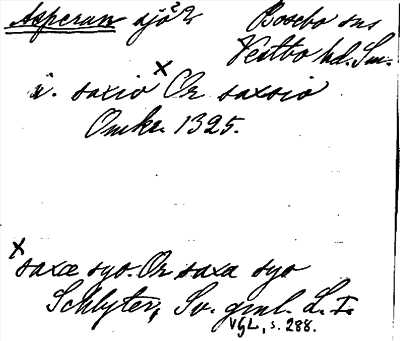 Asperen sjö 2 Bosebo sns
Västbo hd. Sm.
i. saxio x Or saxsio
Omkr. 1325.
x saxæ syo. Or saxa syo
Schlyter, Sv. gml. L. I.
VgL, s. 288.